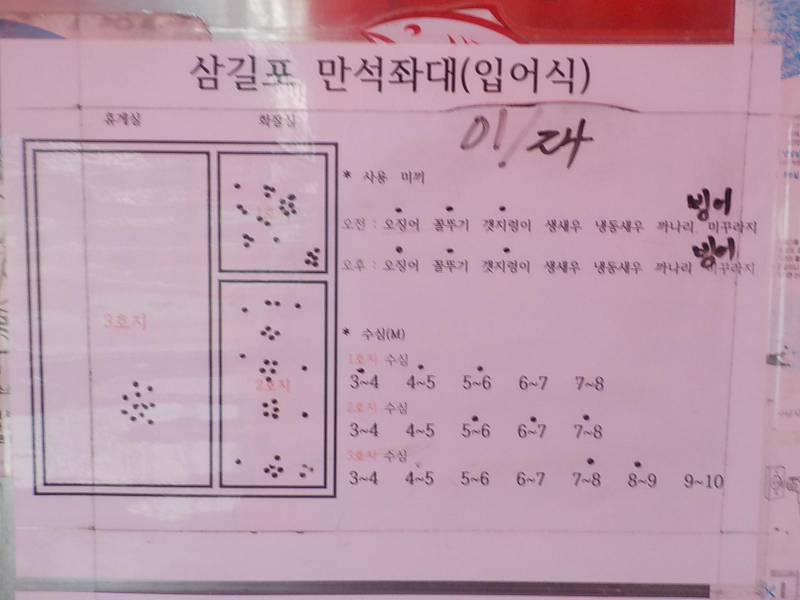 삼길포 만석좌대(입어식)
휴게실 화장실
* 사용 미끼
빙어
오전 : 오징어 꼴뚜기 갯지렁이 생새우 냉동새우 까나리 미꾸라지
빙어
오후 : 오징어 꼴뚜기 갯지렁이 생새우 냉동새우 까나리 미꾸라지
3호지
2호지
* 수심(M)
1호지 수심
3~4 4~5 5~6 6~7 7~8
2호지 수심
3~4 4~5 5~6 6~7 7~8
3호지 수심
3~4 4~5 5~6 6~7 7~8 8~9 9~10